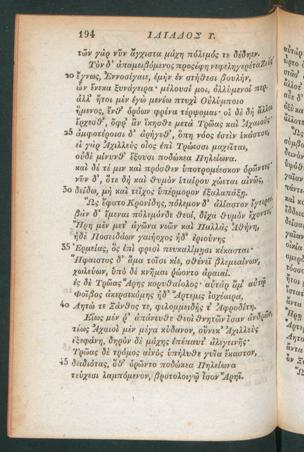 194 ΙΛΙΑΔΟΣ Υ.
τῶν γὰρ νῦν ἄγχιστα μάχη πόλεμός τε δέδηεν.
Τὸν δ' ἀπαμειβόμενος προσέφη νεφεληγερέτα Ζεύς
20 ἔγνως, Ἐννοσίγαιε, ἐμὴν ἐν στήθεσι βουλήν,
ὧν ἕνεκα ξυνάγειρα· μέλουσί μοι, ὀλλύμενοί περ.
ἀλλ' ἤτοι μὲν ἐγὼ μενέω πτυχὶ Οὐλύμποιο
ἥμενος, ἔνθ' ὁρόων φρένα τέρψομαι· οἱ δὲ δὴ ἄλλοι
ἔρχεσθ', ὄφρ' ἂν ἵκησθε μετὰ Τρῶας καὶ Ἀχαιούς·
25 ἀμφοτέροισι δ' ἀρήγεθ', ὅπη νόος ἐστὶν ἑκάστου,
εἰ γὰρ Ἀχιλλεὺς οἶος ἐπὶ Τρώεσσι μαχεῖται,
οὐδὲ μίνυνθ' ἕξουσι ποδώκεα Πηλείωνα.
καὶ δέ τέ μιν καὶ πρόσθεν ὑποτρομέεσκον ὁρῶντες·
νῦν δ', ὅτε δὴ καὶ θυμὸν ἑταίρου χώεται αἰνῶς,
30 δείδω, μὴ καὶ τεῖχος ὑπέρμορον ἐξαλαπάξῃ.
Ὣς ἔφατο Κρονίδης, πόλεμον δ' ἀλίαστον ἔγειρεν·
βὰν δ' ἴμεναι πόλεμόνδε θεοὶ, δίχα θυμὸν ἔχοντες·
Ἥρη μὲν μετ' ἀγῶνα νεῶν καὶ Παλλὰς Ἀθήνη,
ἠδὲ Ποσειδάων γαιήοχος ἠδ' ἐριούνης
35 Ἑρμείας, ὃς ἐπὶ φρεσὶ πευκαλίμῃσι κέκασται·
Ἥφαιστος δ' ἅμα τοῖσι κίε, σθένεϊ βλεμεαίνων,
χωλεύων, ὑπὸ δὲ κνῆμαι ῥώοντο ἀραιαί.
ἐς δὲ Τρῶας Ἄρης κορυθαίολος· αὐτὰρ ἅμ' αὐτῷ
Φοῖβος ἀκερσεκόμης ἠδ' Ἄρτεμις ἰοχέαιρα,
40 Λητώ τε Ξάνθος τε, φιλομμειδής τ' Ἀφροδίτη.
Εἵως μέν ῥ' ἀπάνευθε θεοὶ θνητῶν ἔσαν ἀνδρῶν,
τέως Ἀχαιοὶ μὲν μέγα κύδανον, οὕνεκ' Ἀχιλλεὺς
ἐξεφάνη, δηρὸν δὲ μάχης ἐπέπαυτ' ἀλεγεινῆς·
Τρῶας δὲ τρόμος αἰνὸς ὑπήλυθε γυῖα ἕκαστον,
45 δειδιότας, ὅθ' ὁρῶντο ποδώκεα Πηλείωνα
τεύχεσι λαμπόμενον, βροτολοιγῷ ἶσον Ἄρηϊ.